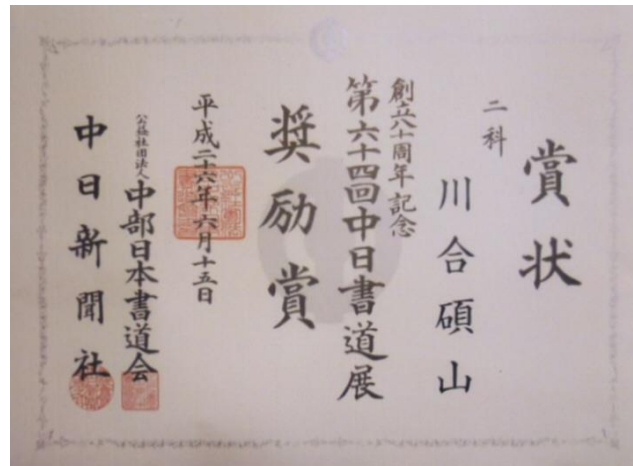 賞状
二科
川合碩山
創立八十周年記念
第六十四回中日書道展
奨励賞
平成二十六年六月十五日
公益社団法人
中部日本書道会
中日新聞社